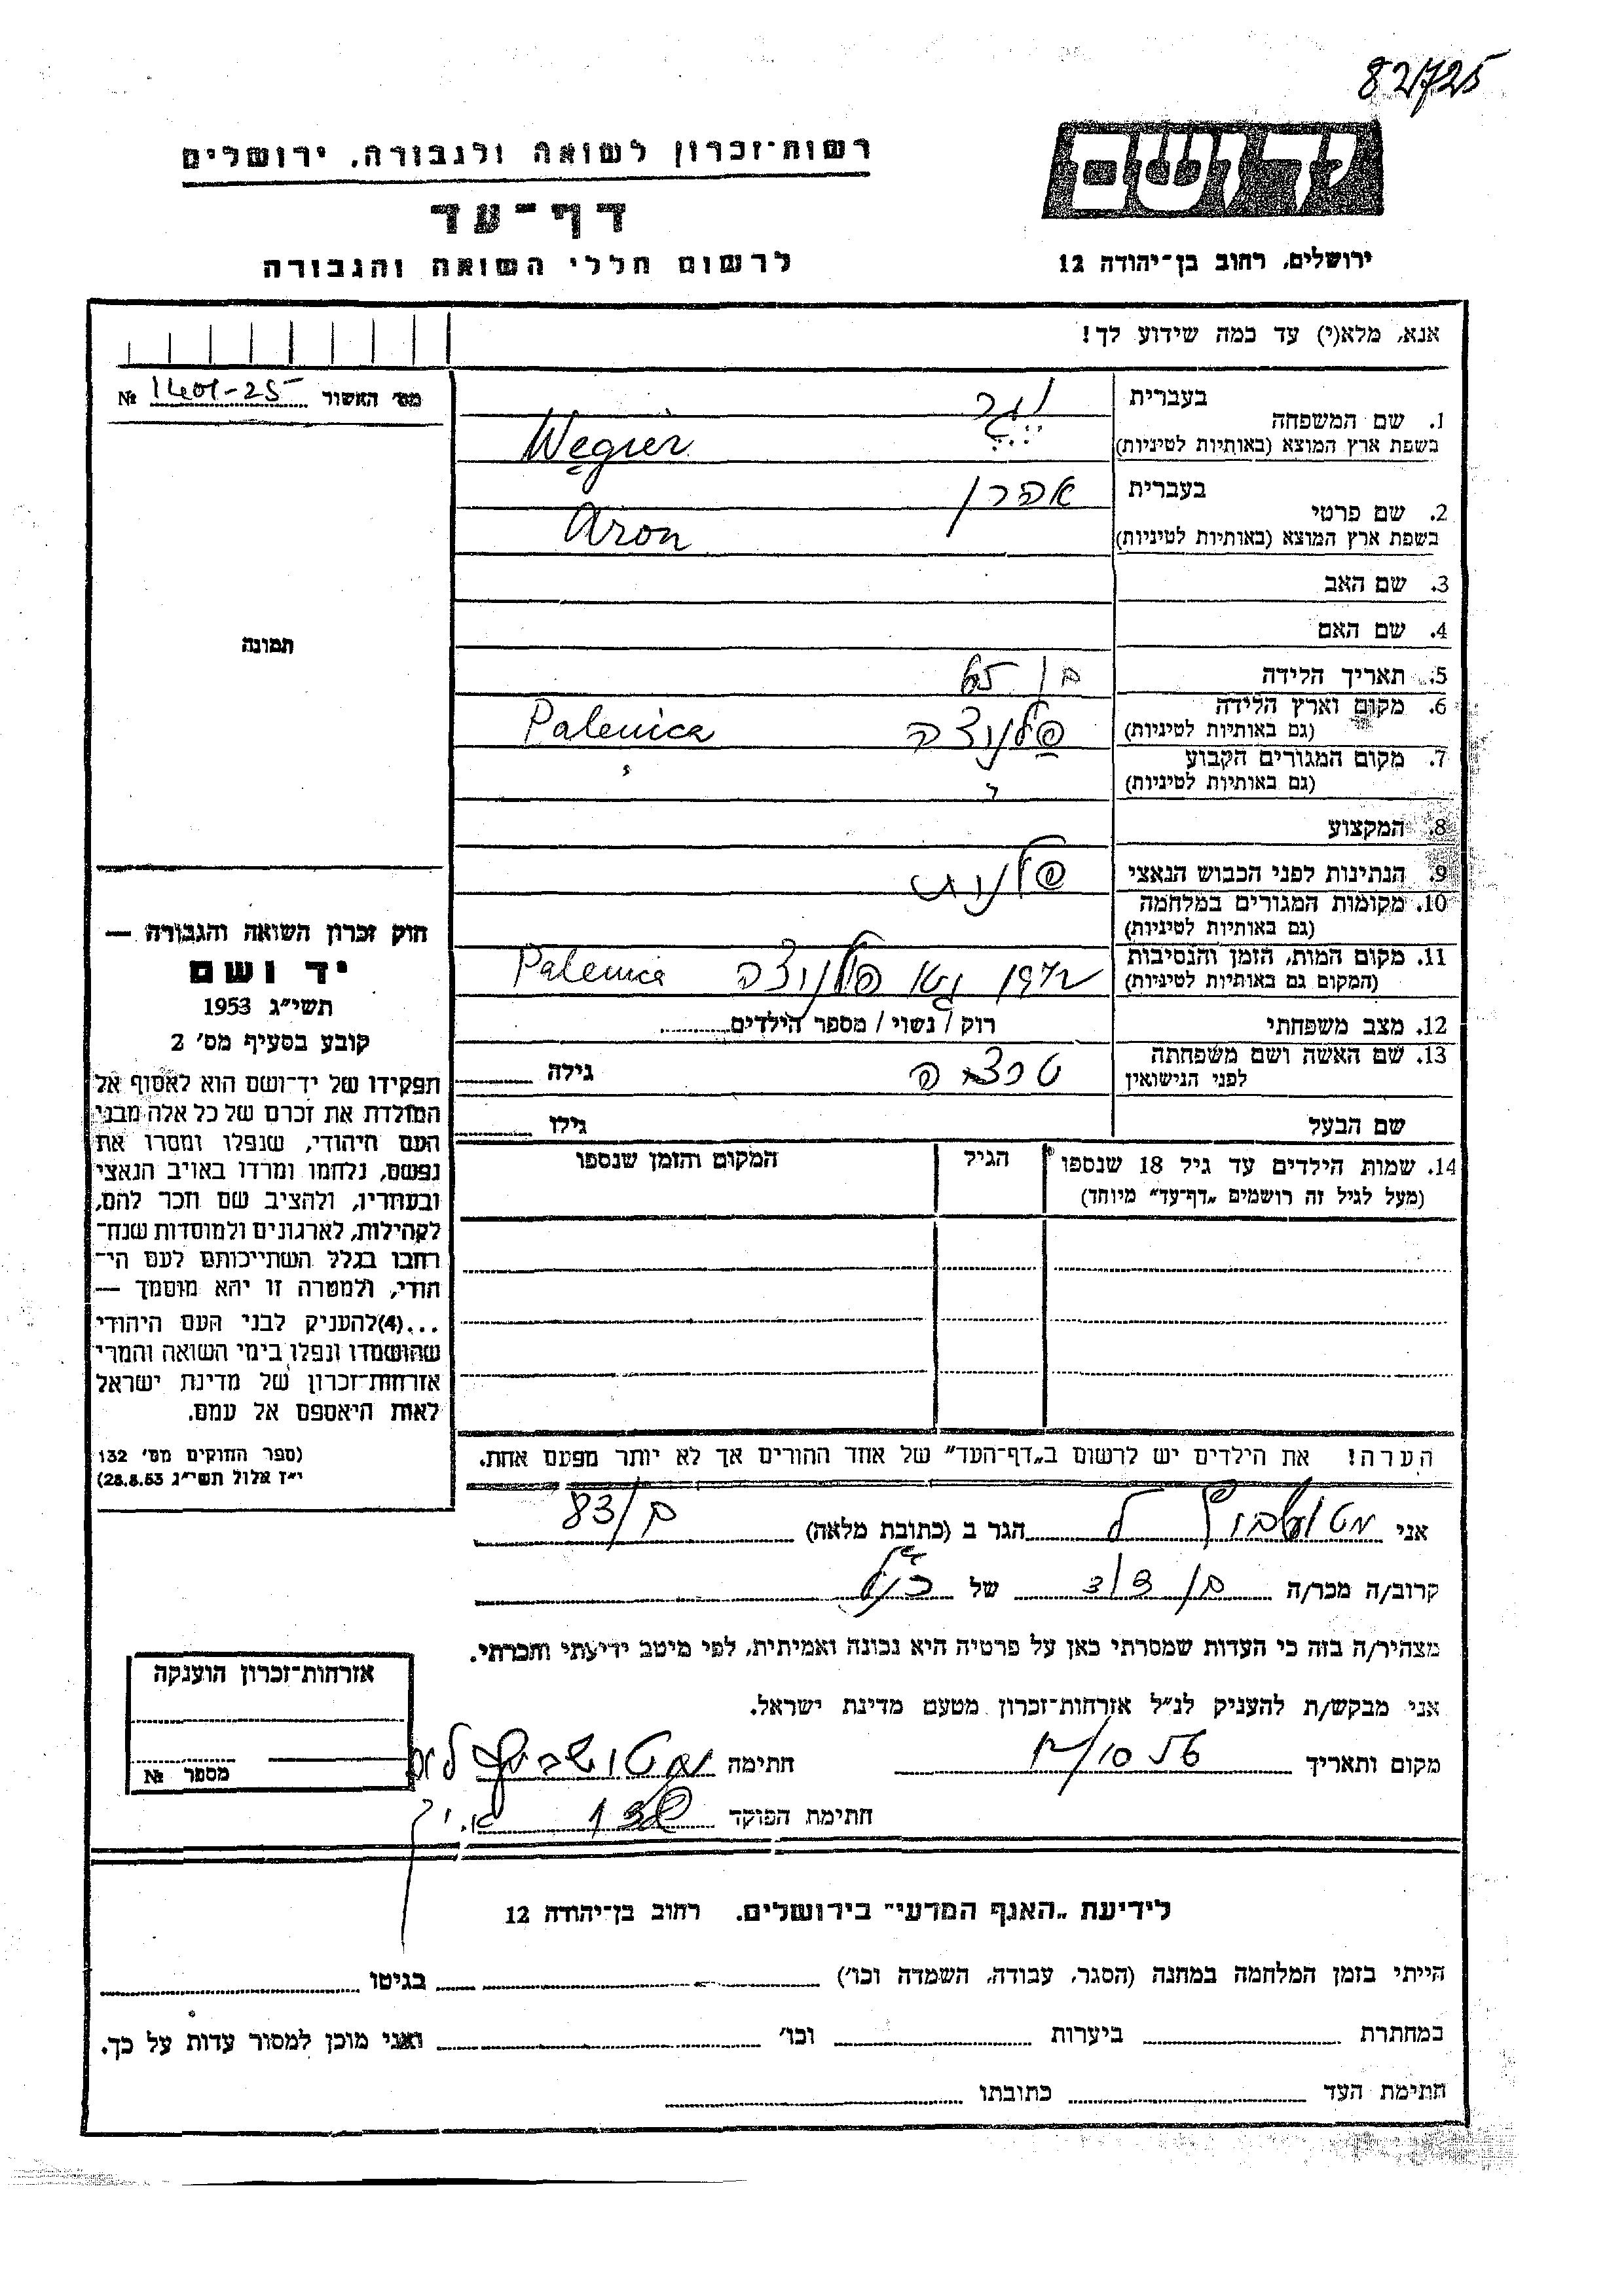 82725
רשות־זכרון לשואה ולגבורה, ירושלים
דף־עד
לרשום חללי השואה והגבורה
ירושלים, רחוב בן־יהודה 12
אנא, מלא(י) עד כמה שידוע לך!
מס׳ האשור 1401-25 №
תמונה
חוק זכרון השואה והגבורה —
יד ושם
תשי״ג 1953
קובע בסעיף מס׳ 2
תפקידו של יד־ושם הוא לאסוף אל
המולדת את זכרם של כל אלה מבני
העם היהודי, שנפלו ומסרו את
נפשם, נלחמו ומרדו באויב הנאצי
ובעוזריו, ולהציב שם וזכר להם,
לקהילות, לארגונים ולמוסדות שנח־
רבו בגלל השתייכותם לעם הי־
הודי, ולמטרה זו יהא מוסמך —
...(4)להעניק לבני העם היהודי
שהושמדו ונפלו בימי השואה והמרי
אזרחות־זכרון של מדינת ישראל
לאות היאספם אל עמם.
(ספר החוקים מס׳ 132
י״ז אלול תשי״ג 28.8.53)
1. שם המשפחה
בעברית ונגר
בשפת ארץ המוצא (באותיות לטיניות) Węgier
2. שם פרטי
בעברית אהרן
בשפת ארץ המוצא (באותיות לטיניות) Aron
3. שם האב
4. שם האם
5. תאריך הלידה בן 65
6. מקום וארץ הלידה
(גם באותיות לטיניות) פלניצה Palenica
7. מקום המגורים הקבוע
(גם באותיות לטיניות)
8. המקצוע
9. הנתינות לפני הכבוש הנאצי פולנית
10. מקומות המגורים במלחמה
(גם באותיות לטיניות)
11. מקום המות, הזמן והנסיבות
(המקום גם באותיות לטיניות) 1942 פלניצה Palenica
12. מצב משפחתי רוק / נשוי / מספר הילדים
13. שם האשה ושם משפחתה
לפני הנישואין גילה
שם הבעל גילו
14. שמות הילדים עד גיל 18 שנספו
(מעל לגיל זה רושמים „דף־עד״ מיוחד)
הגיל
המקום והזמן שנספו
הערה! את הילדים יש לרשום ב„דף־העד״ של אחד ההורים אך לא יותר מפעם אחת.
אני הגר ב (כתובת מלאה)
קרוב/ה מכר/ה של
מצהיר/ה בזה כי העדות שמסרתי כאן על פרטיה היא נכונה ואמיתית, לפי מיטב ידיעתי והכרתי.
אני מבקש/ת להעניק לנ״ל אזרחות־זכרון מטעם מדינת ישראל.
מקום ותאריך חתימה
חתימת הפוקד
אזרחות־זכרון הוענקה
מספר №
לידיעת „האגף המדעי״ בירושלים. רחוב בן־יהודה 12
הייתי בזמן המלחמה במחנה (הסגר, עבודה, השמדה וכו׳) בגיטו
במחתרת ביערות וכו׳ ואני מוכן למסור עדות על כך.
חתימת העד כתובתו